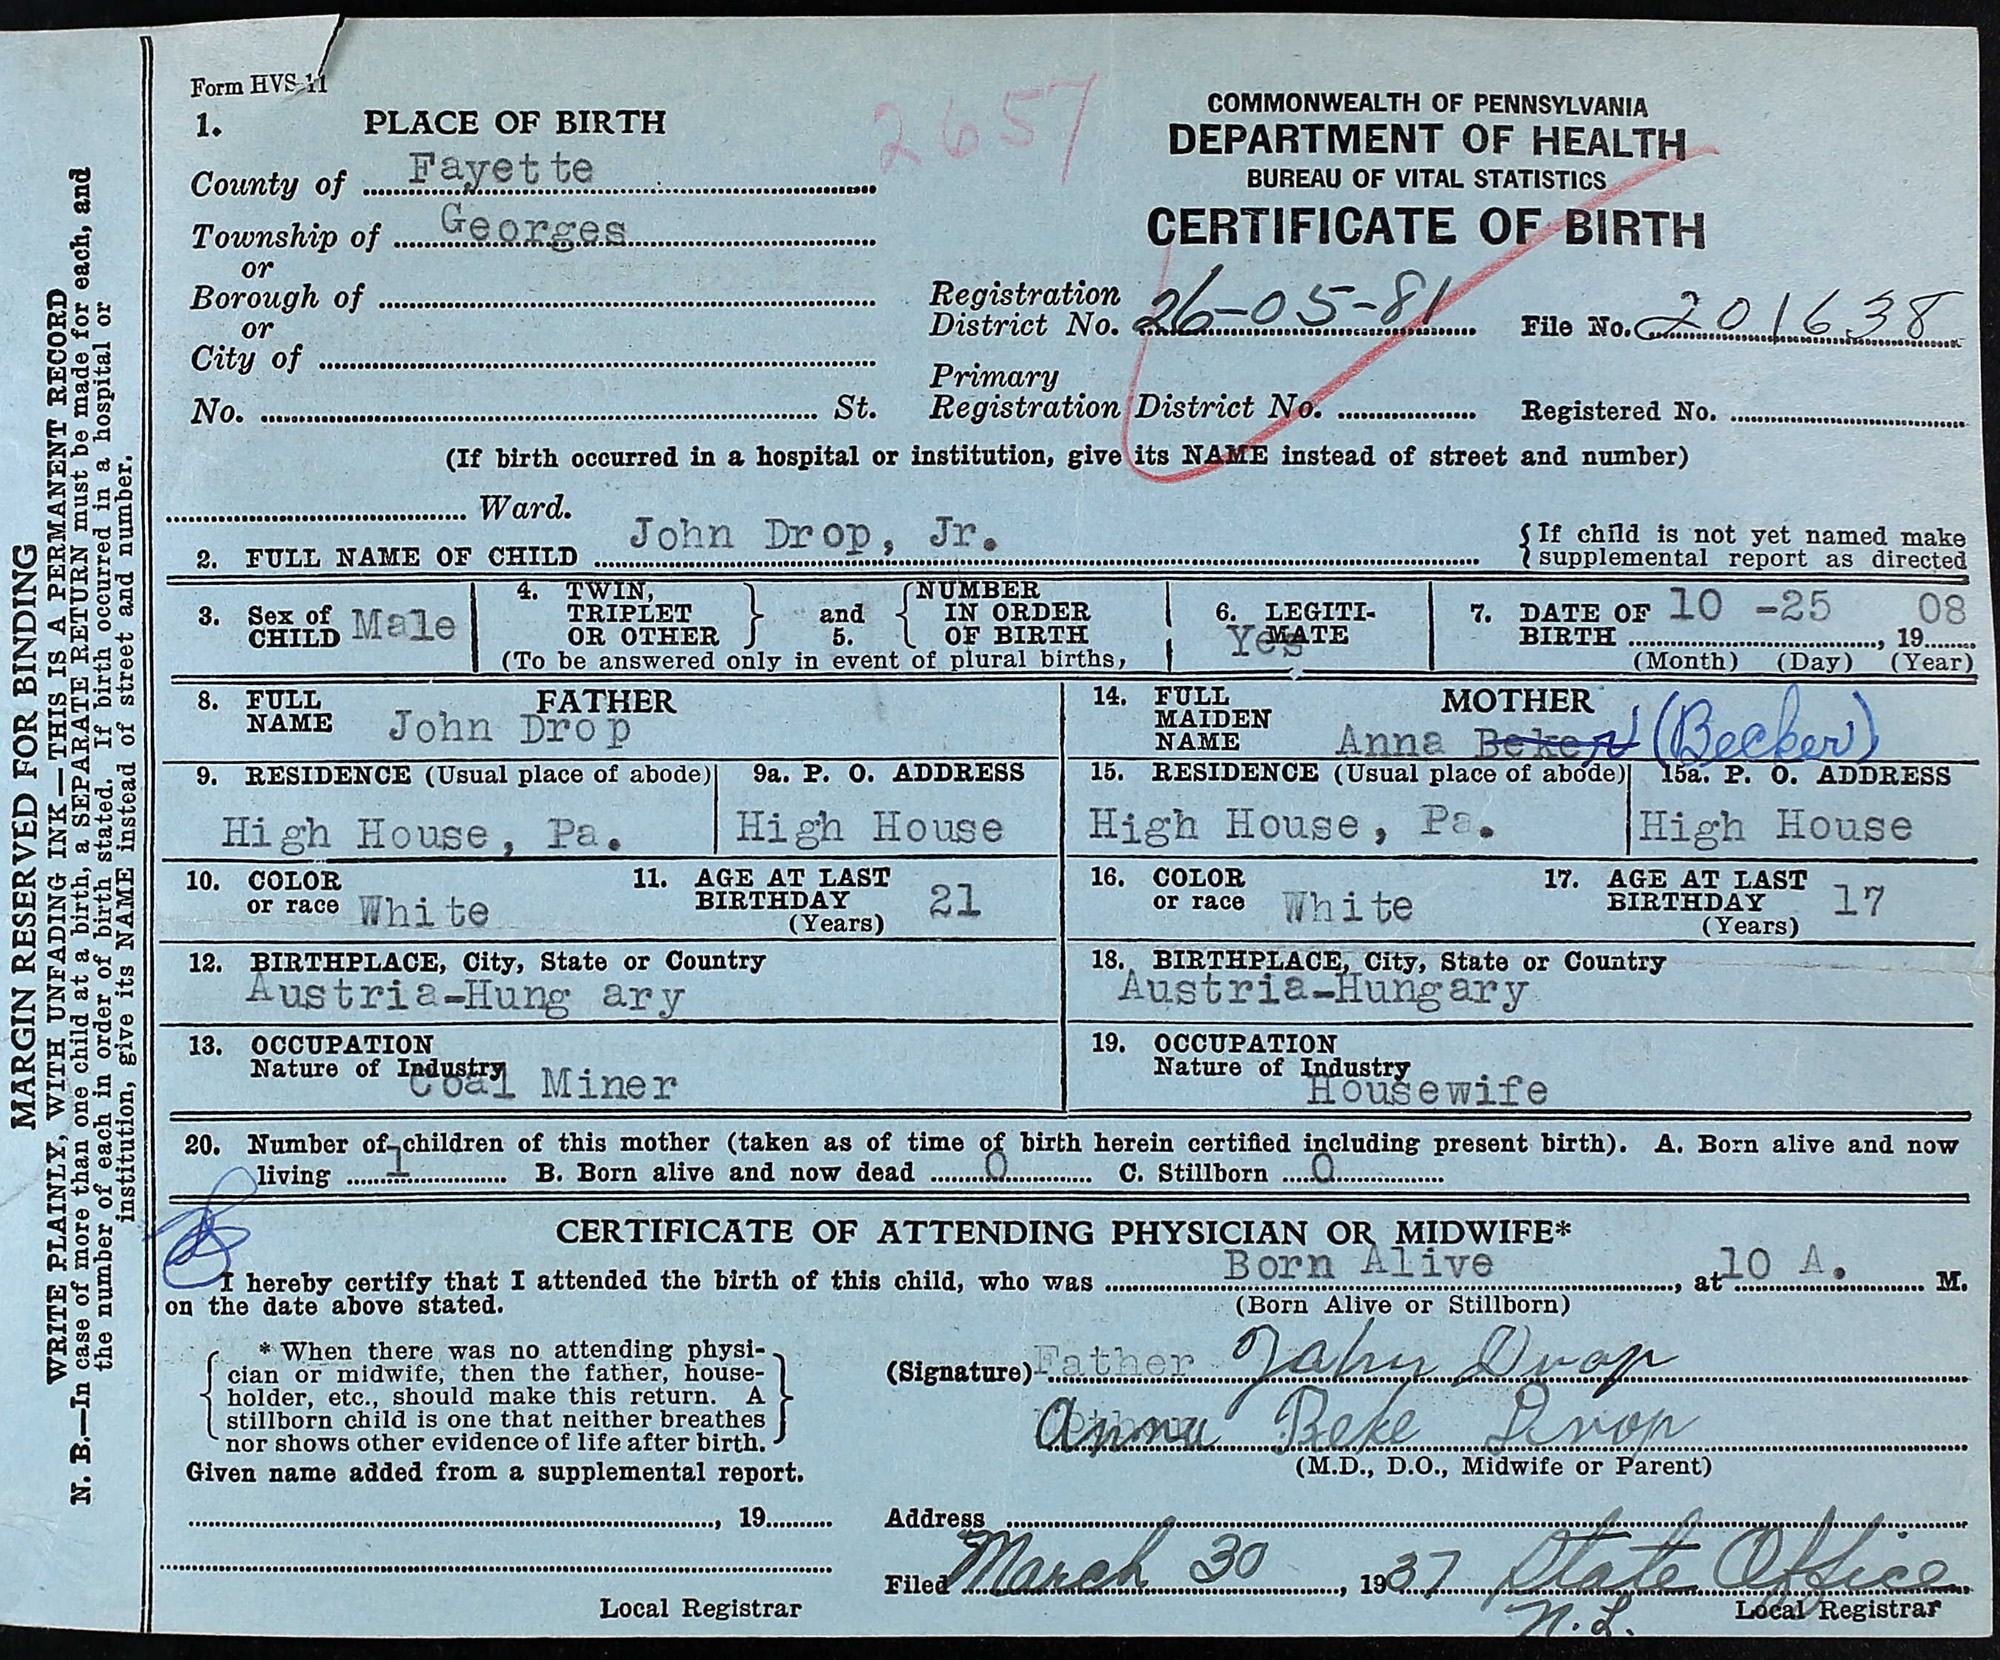 Form HVS-11
2657
1. PLACE OF BIRTH
County of Fayette
Township of Georges
or
Borough of
or
City of
No. St.
COMMONWEALTH OF PENNSYLVANIA
DEPARTMENT OF HEALTH
BUREAU OF VITAL STATISTICS
CERTIFICATE OF BIRTH
Registration
District No. 26-05-81 File No. 201638
Primary
Registration District No. Registered No.
(If birth occurred in a hospital or institution, give its NAME instead of street and number)
Ward.
2. FULL NAME OF CHILD John Drop, Jr.
If child is not yet named make
supplemental report as directed
3. Sex of
CHILD Male
4. TWIN,
TRIPLET
OR OTHER
and
5.
NUMBER
IN ORDER
OF BIRTH
(To be answered only in event of plural births,
6. LEGITI-
MATE
Yes
7. DATE OF
BIRTH 10 -25 , 19 08
(Month) (Day) (Year)
8. FULL
NAME
FATHER
John Drop
14. FULL
MAIDEN
NAME
MOTHER
Anna Beker (Becker)
9. RESIDENCE (Usual place of abode)
High House, Pa.
9a. P. O. ADDRESS
High House
15. RESIDENCE (Usual place of abode)
High House, Pa.
15a. P. O. ADDRESS
High House
10. COLOR
or race White
11. AGE AT LAST
BIRTHDAY 21
(Years)
16. COLOR
or race White
17. AGE AT LAST
BIRTHDAY 17
(Years)
12. BIRTHPLACE, City, State or Country
Austria-Hung ary
18. BIRTHPLACE, City, State or Country
Austria-Hungary
13. OCCUPATION
Nature of Industry
Coal Miner
19. OCCUPATION
Nature of Industry
Housewife
20. Number of children of this mother (taken as of time of birth herein certified including present birth). A. Born alive and now
living 1 B. Born alive and now dead 0 C. Stillborn 0
CERTIFICATE OF ATTENDING PHYSICIAN OR MIDWIFE*
I hereby certify that I attended the birth of this child, who was Born Alive, at 10 A. M.
on the date above stated.
(Born Alive or Stillborn)
* When there was no attending physi-
cian or midwife, then the father, house-
holder, etc., should make this return. A
stillborn child is one that neither breathes
nor shows other evidence of life after birth.
Given name added from a supplemental report.
, 19
Local Registrar
(Signature) Father John Drop
Anna Beke Drop
(M.D., D.O., Midwife or Parent)
Address
Filed March 30, 1937 State Office
N.L. Local Registrar
MARGIN RESERVED FOR BINDING
WRITE PLAINLY, WITH UNFADING INK—THIS IS A PERMANENT RECORD
N. B.—In case of more than one child at a birth, a SEPARATE RETURN must be made for each, and
the number of each in order of birth stated. If birth occurred in a hospital or
institution, give its NAME instead of street and number.